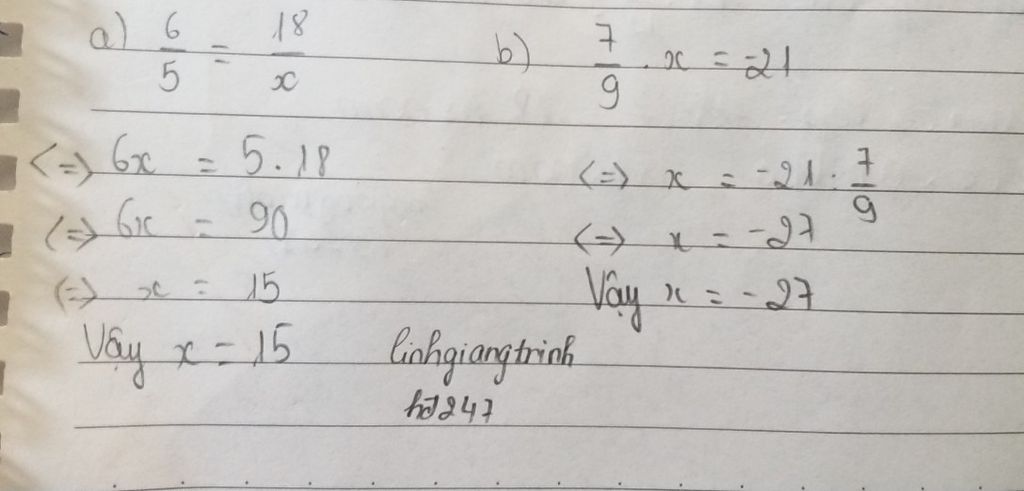 a) 6/5 = 18/x
<=> 6x = 5.18
<=> 6x = 90
<=> x = 15
Vậy x = 15
b) 7/9 . x = -21
<=> x = -21 : 7/9
<=> x = -27
Vậy x = -27
linhgiangtrinh
hđ247